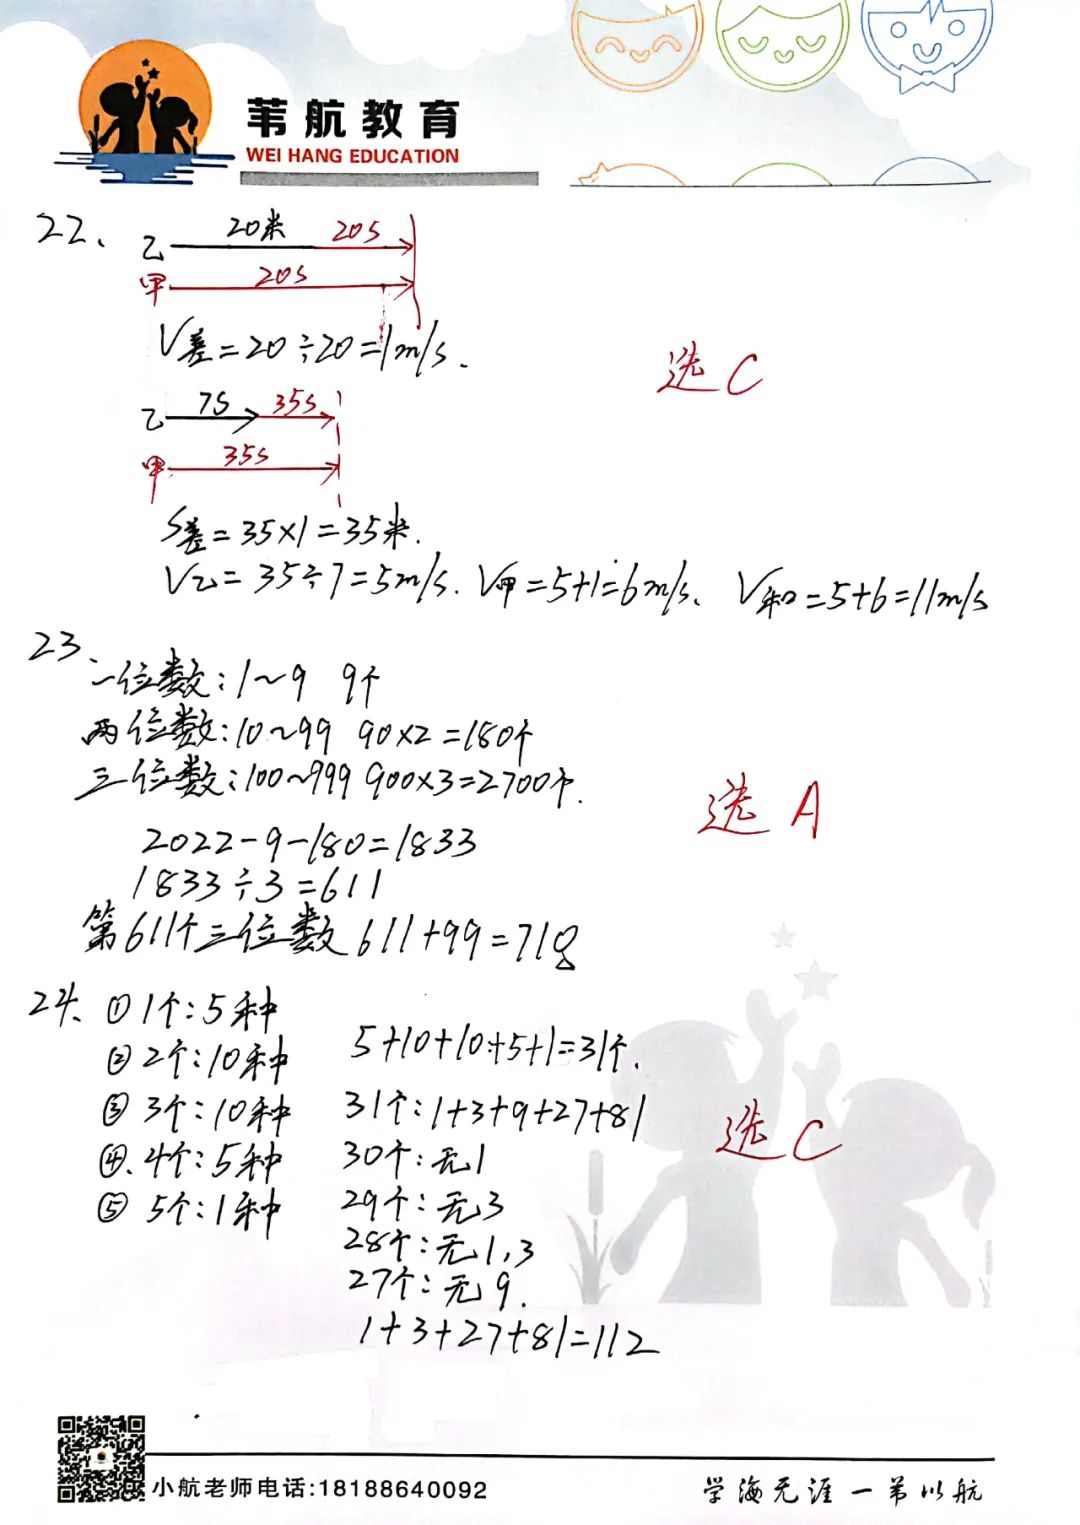 苇航教育
WEI HANG EDUCATION
22、
乙 20米 20s
甲 20s
V差=20÷20=1m/s.
选C
乙 7s 35s
甲 35s
S差=35×1=35米.
V乙=35÷7=5m/s. V甲=5+1=6m/s、 V和=5+6=11m/s
23、
一位数:1~9 9个
两位数:10~99 90×2=180个
三位数:100~999 900×3=2700个.
选A
2022-9-180=1833
1833÷3=611
第611个三位数 611+99=710
24、①1个:5种
②2个:10种
5+10+10+5+1=31个.
③3个:10种
31个:1+3+9+27+81
选C
④、4个:5种
30个:无1
⑤5个:1种
29个:无3
28个:无1,3
27个:无9.
1+3+27+81=112
小航老师电话:18188640092
学海无涯一苇以航